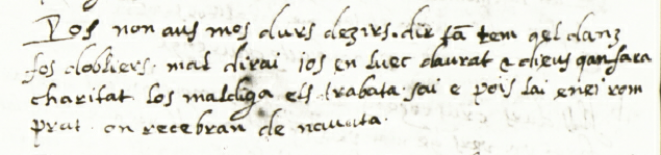 Pos non aus mos durs dezirs. dir fã tem qel danz
fos dobliers. mal dirai ios en luec daurat & dieus qan fara
charitat los maldiga els trabata sai e pois lai enei rom
prat. on recebran de nauuta.